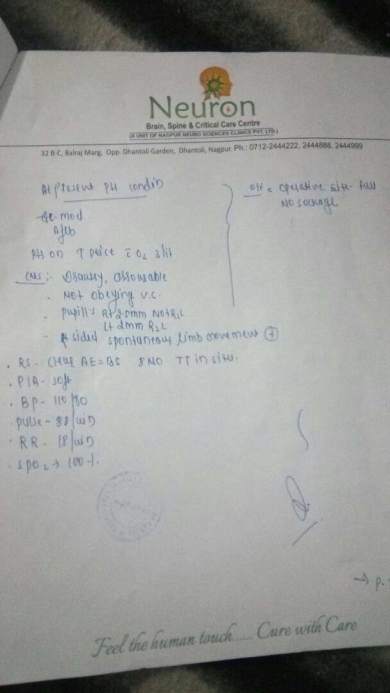 Neuron
Brain, Spine & Critical Care Centre
(A UNIT OF NAGPUR NEURO SCIENCES CLINICS PVT. LTD.)
32 B-C, Balraj Marg, Opp. Dhantoli Garden, Dhantoli, Nagpur. Ph.: 0712-2444222, 2444888, 2444999
At present Pt condin
Ge mod
Afeb
Pt on T piece c̄ O₂ 3 lit
CNS: Drowsy, arousable
· Not obeying v.c.
· Pupills Rt 2.0mm NotR₂L
Lt 2mm R₂L
sided spontaneous limb movement ⊕
· RS - Clear AE = BS TT in situ.
· P/A - soft
· BP - 110/80
pulse - 88/min
· RR - 18/min
· SPO₂ → 100%
operative site
No soakage
→ p.
Feel the human touch..... Cure with Care